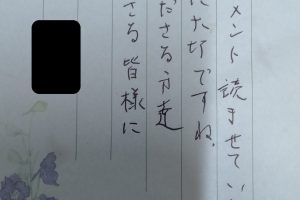 メント読ませてい
にたなですね、
ださる方達
さる皆様に